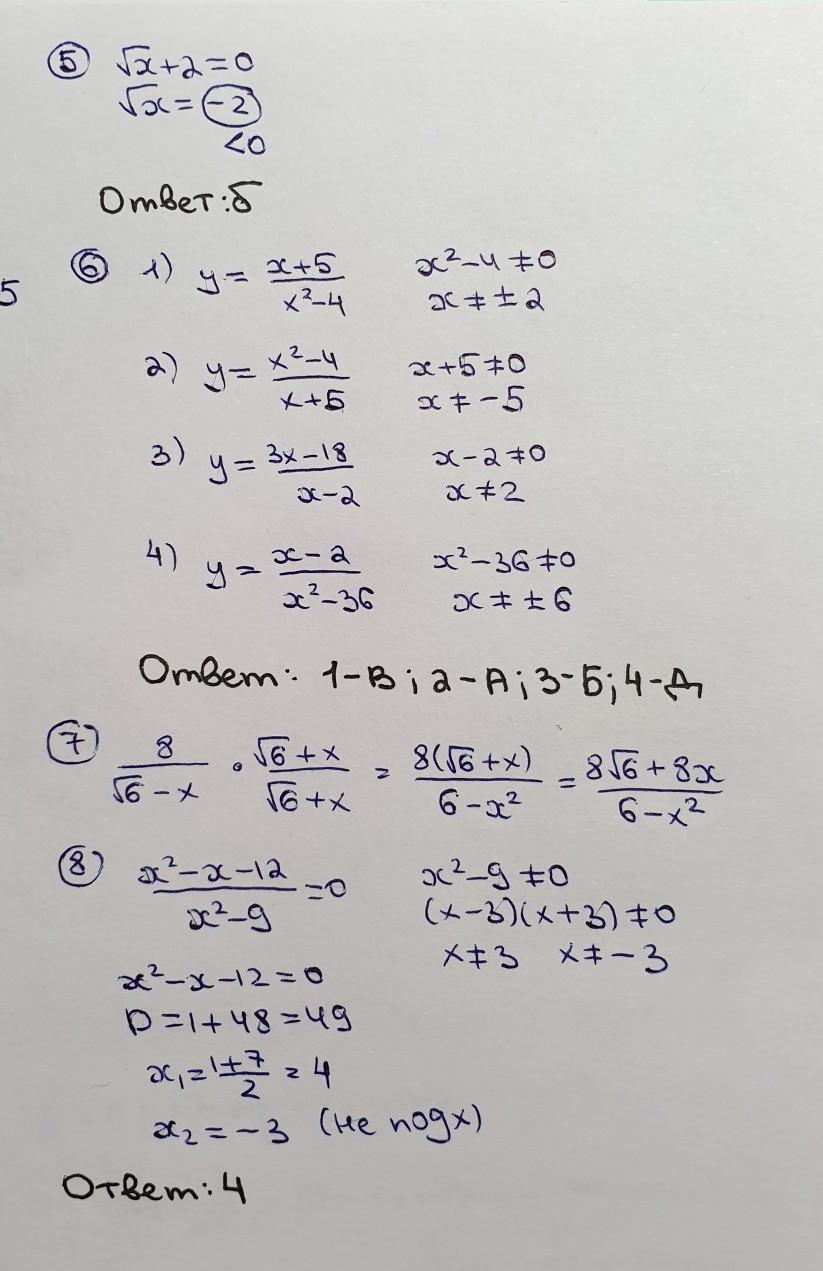 ⑤ √x+2=0
√x=-2
<0
Ответ:б
5
⑥ 1) y= (x+5)/(x²-4) x²-4≠0
x≠±2
2) y= (x²-4)/(x+5) x+5≠0
x≠-5
3) y= (3x-18)/(x-2) x-2≠0
x≠2
4) y= (x-2)/(x²-36) x²-36≠0
x≠±6
Ответ: 1-В; 2-А; 3-Б; 4-Д
⑦ 8/(√6-x) · (√6+x)/(√6+x) = 8(√6+x)/(6-x²) = (8√6+8x)/(6-x²)
⑧ (x²-x-12)/(x²-9)=0 x²-9≠0
(x-3)(x+3)≠0
x≠3 x≠-3
x²-x-12=0
D=1+48=49
x₁=(1+7)/2=4
x₂=-3 (не подх)
Ответ:4